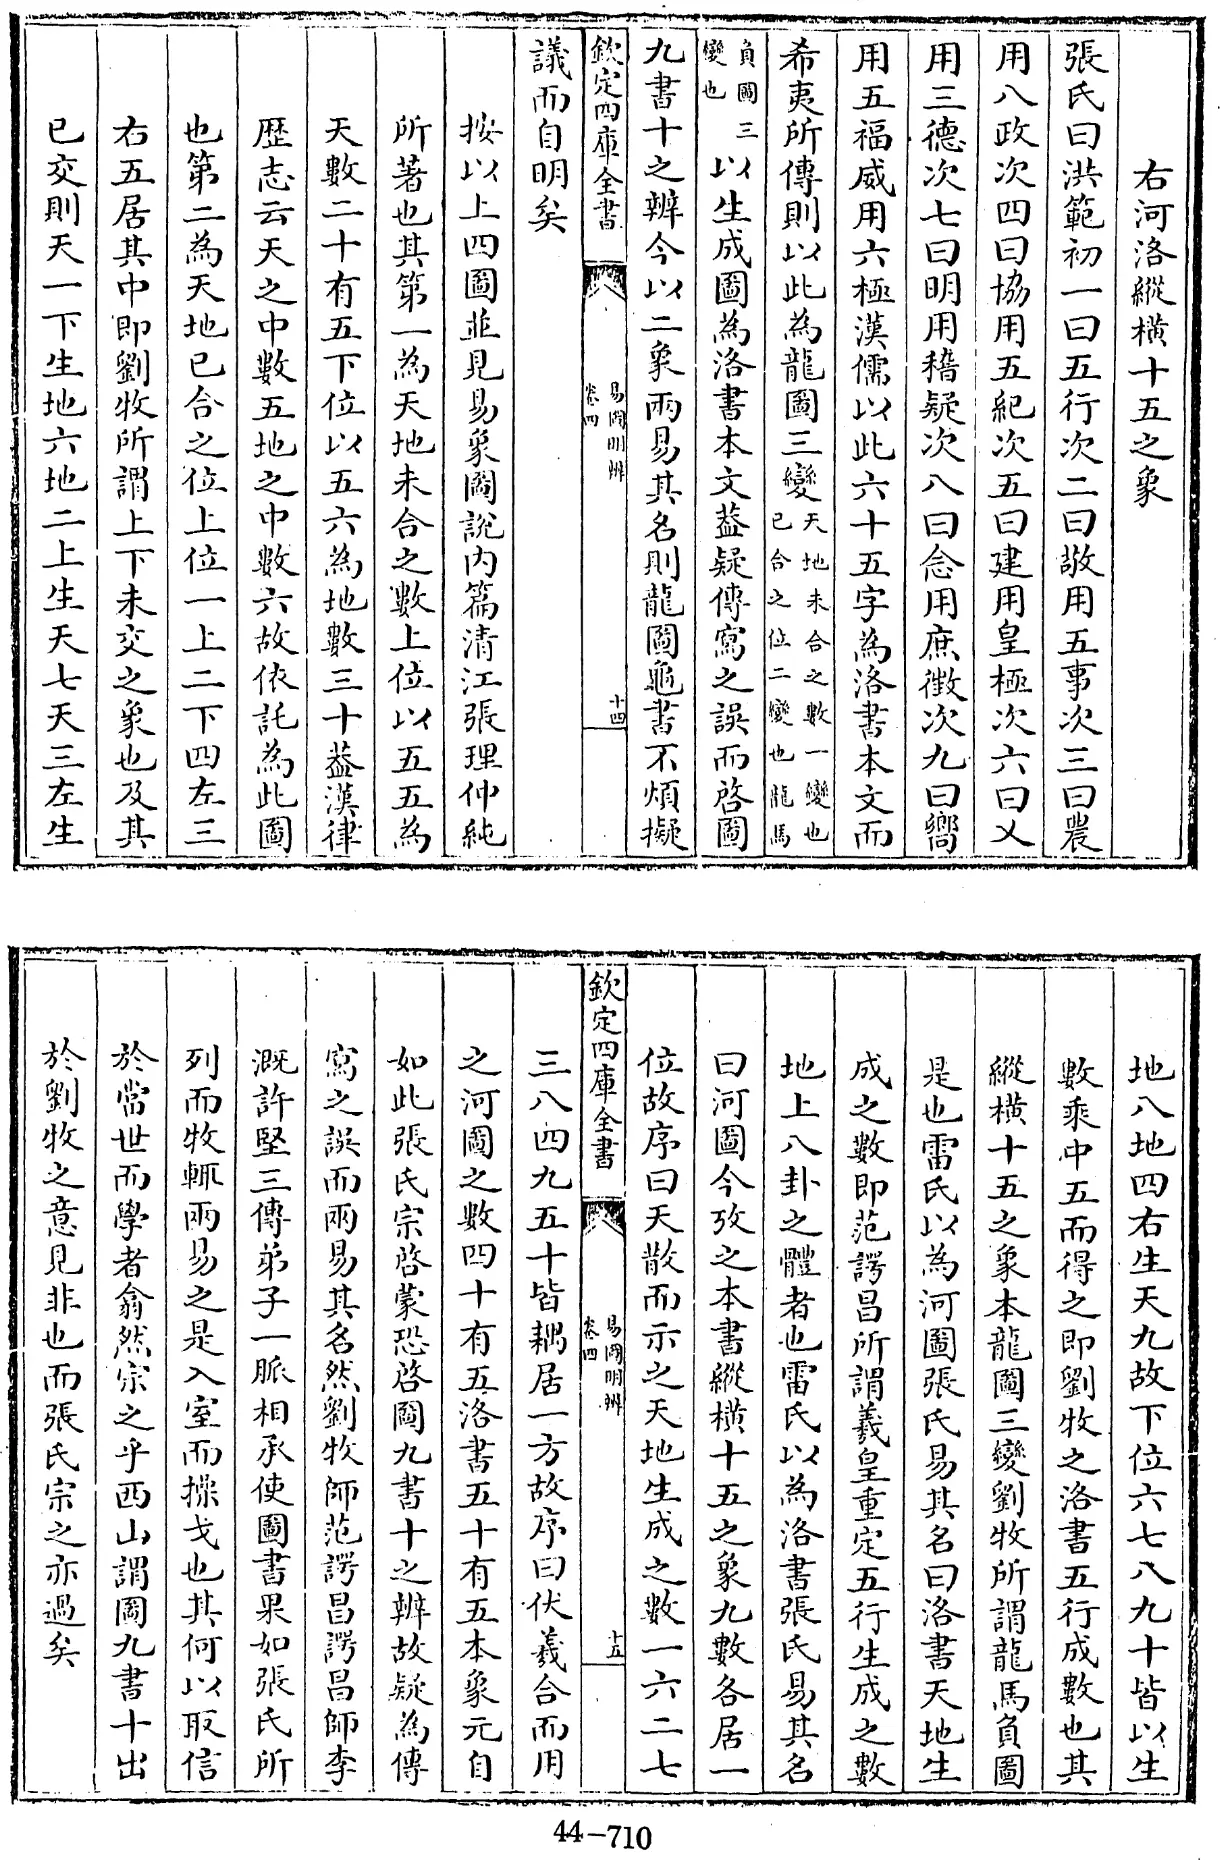 右河洛縱橫十五之象
張氏曰洪範初一曰五行次二曰敬用五事次三曰農
用八政次四曰協用五紀次五曰建用皇極次六曰乂
用三德次七曰明用稽疑次八曰念用庶徵次九曰嚮
用五福威用六極漢儒以此六十五字為洛書本文而
希夷所傳則以此為龍圖三變天地未合之數一變也
已合之位二變也龍馬
負圖三
變也以生成圖為洛書本文葢疑傳寫之誤而啓圖
九書十之辨今以二象兩易其名則龍圖龜書不煩擬
欽定四庫全書
易圖明辨
卷四
十四
議而自明矣
按以上四圖並見易象圖說內篇清江張理仲純
所著也其第一為天地未合之數上位以五五為
天數二十有五下位以五六為地數三十葢漢律
歷志云天之中數五地之中數六故依託為此圖
也第二為天地已合之位上位一上二下四左三
右五居其中即劉牧所謂上下未交之象也及其
已交則天一下生地六地二上生天七天三左生
地八地四右生天九故下位六七八九十皆以生
數乘中五而得之即劉牧之洛書五行成數也其
縱橫十五之象本龍圖三變劉牧所謂龍馬負圖
是也雷氏以為河圖張氏易其名曰洛書天地生
成之數即范諤昌所謂羲皇重定五行生成之數
地上八卦之體者也雷氏以為洛書張氏易其名
曰河圖今攷之本書縱橫十五之象九數各居一
位故序曰天散而示之天地生成之數一六二七
欽定四庫全書
易圖明辨
卷四
十五
三八四九五十皆耦居一方故序曰伏羲合而用
之河圖之數四十有五洛書五十有五本象元自
如此張氏宗啓蒙恐啓圖九書十之辨故疑為傳
寫之誤而兩易其名然劉牧師范諤昌諤昌師李
溉許堅三傳弟子一脈相承使圖書果如張氏所
列而牧輒兩易之是入室而操戈也其何以取信
於當世而學者翕然宗之乎西山謂圖九書十出
於劉牧之意見非也而張氏宗之亦過矣
44-710